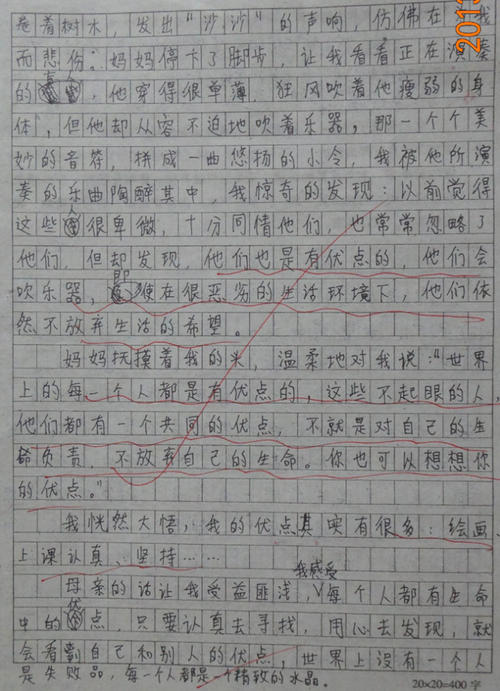 卷着树木，发出“沙沙”的声响，仿佛在 我
而悲伤。妈妈停下了脚步，让我看看正在演奏
的 人，他穿得很单薄，狂风吹着他瘦弱的身
体，但他却从容不迫地吹着乐器，那一个个美
妙的音符，拼成一曲悠扬的小令，我被他所演
奏的乐曲陶醉其中，我惊奇的发现：以前觉得
这些人很卑微，十分同情他们，也常常忽略了
他们，但却发现，他们也是有优点的，他们会
吹乐器，即使在很恶劣的生活环境下，他们依
然不放弃生活的希望。
妈妈抚摸着我的头，温柔地对我说：“世界
上的每一个人都是有优点的，这些不起眼的人，
他们都有一个共同的优点，不就是对自己的生
命负责，不放弃自己的生命。你也可以想想你
的优点。”
我恍然大悟，我的优点其实有很多：绘画、
上课认真、坚持……
母亲的话让我受益匪浅，我感受每个人都有生命
中的优点，只要认真去寻找，用心去发现，就
会看到自己和别人的优点，世界上没有一个人
是失败品，每一个人都是一个精致的水晶。
20×20=400字
2013